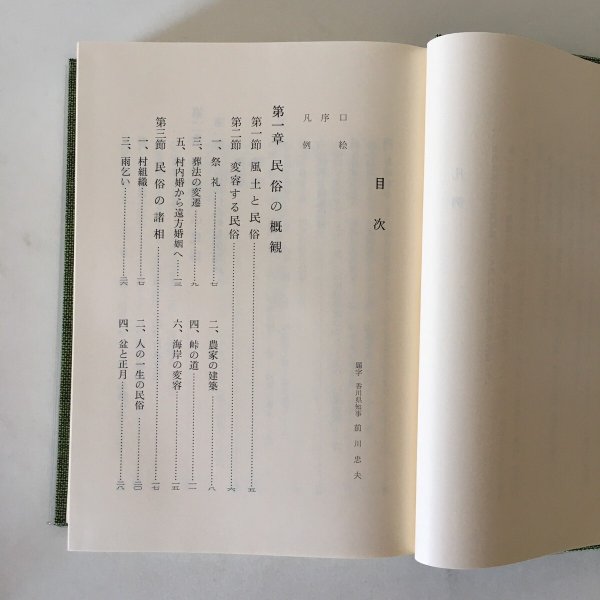 目次
題字 香川県知事 前川忠夫
口絵
序
凡例
第一章 民俗の概観
第一節 風土と民俗……五
第二節 変容する民俗……六
一、祭礼……七
二、農家の建築……八
三、葬法の変遷……九
四、峠の道……一一
五、村内婚から遠方婚姻へ……一三
六、海岸の変容……一五
第三節 民俗の諸相……一七
一、村組織……一七
二、人の一生の民俗……二〇
三、雨乞い……二六
四、盆と正月……二八